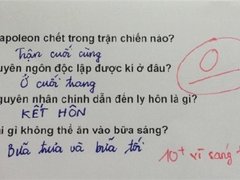 apoleon chết trong trận chiến nào?
Trận cuối cùng
uyên ngôn độc lập được kí ở đâu?
Ở cuối trang
guyên nhân chính dẫn đến ly hôn là gì?
KẾT HÔN
ại gì không thể ăn vào bữa sáng?
Bữa trưa và bữa tối
0
10+ vì sáng t